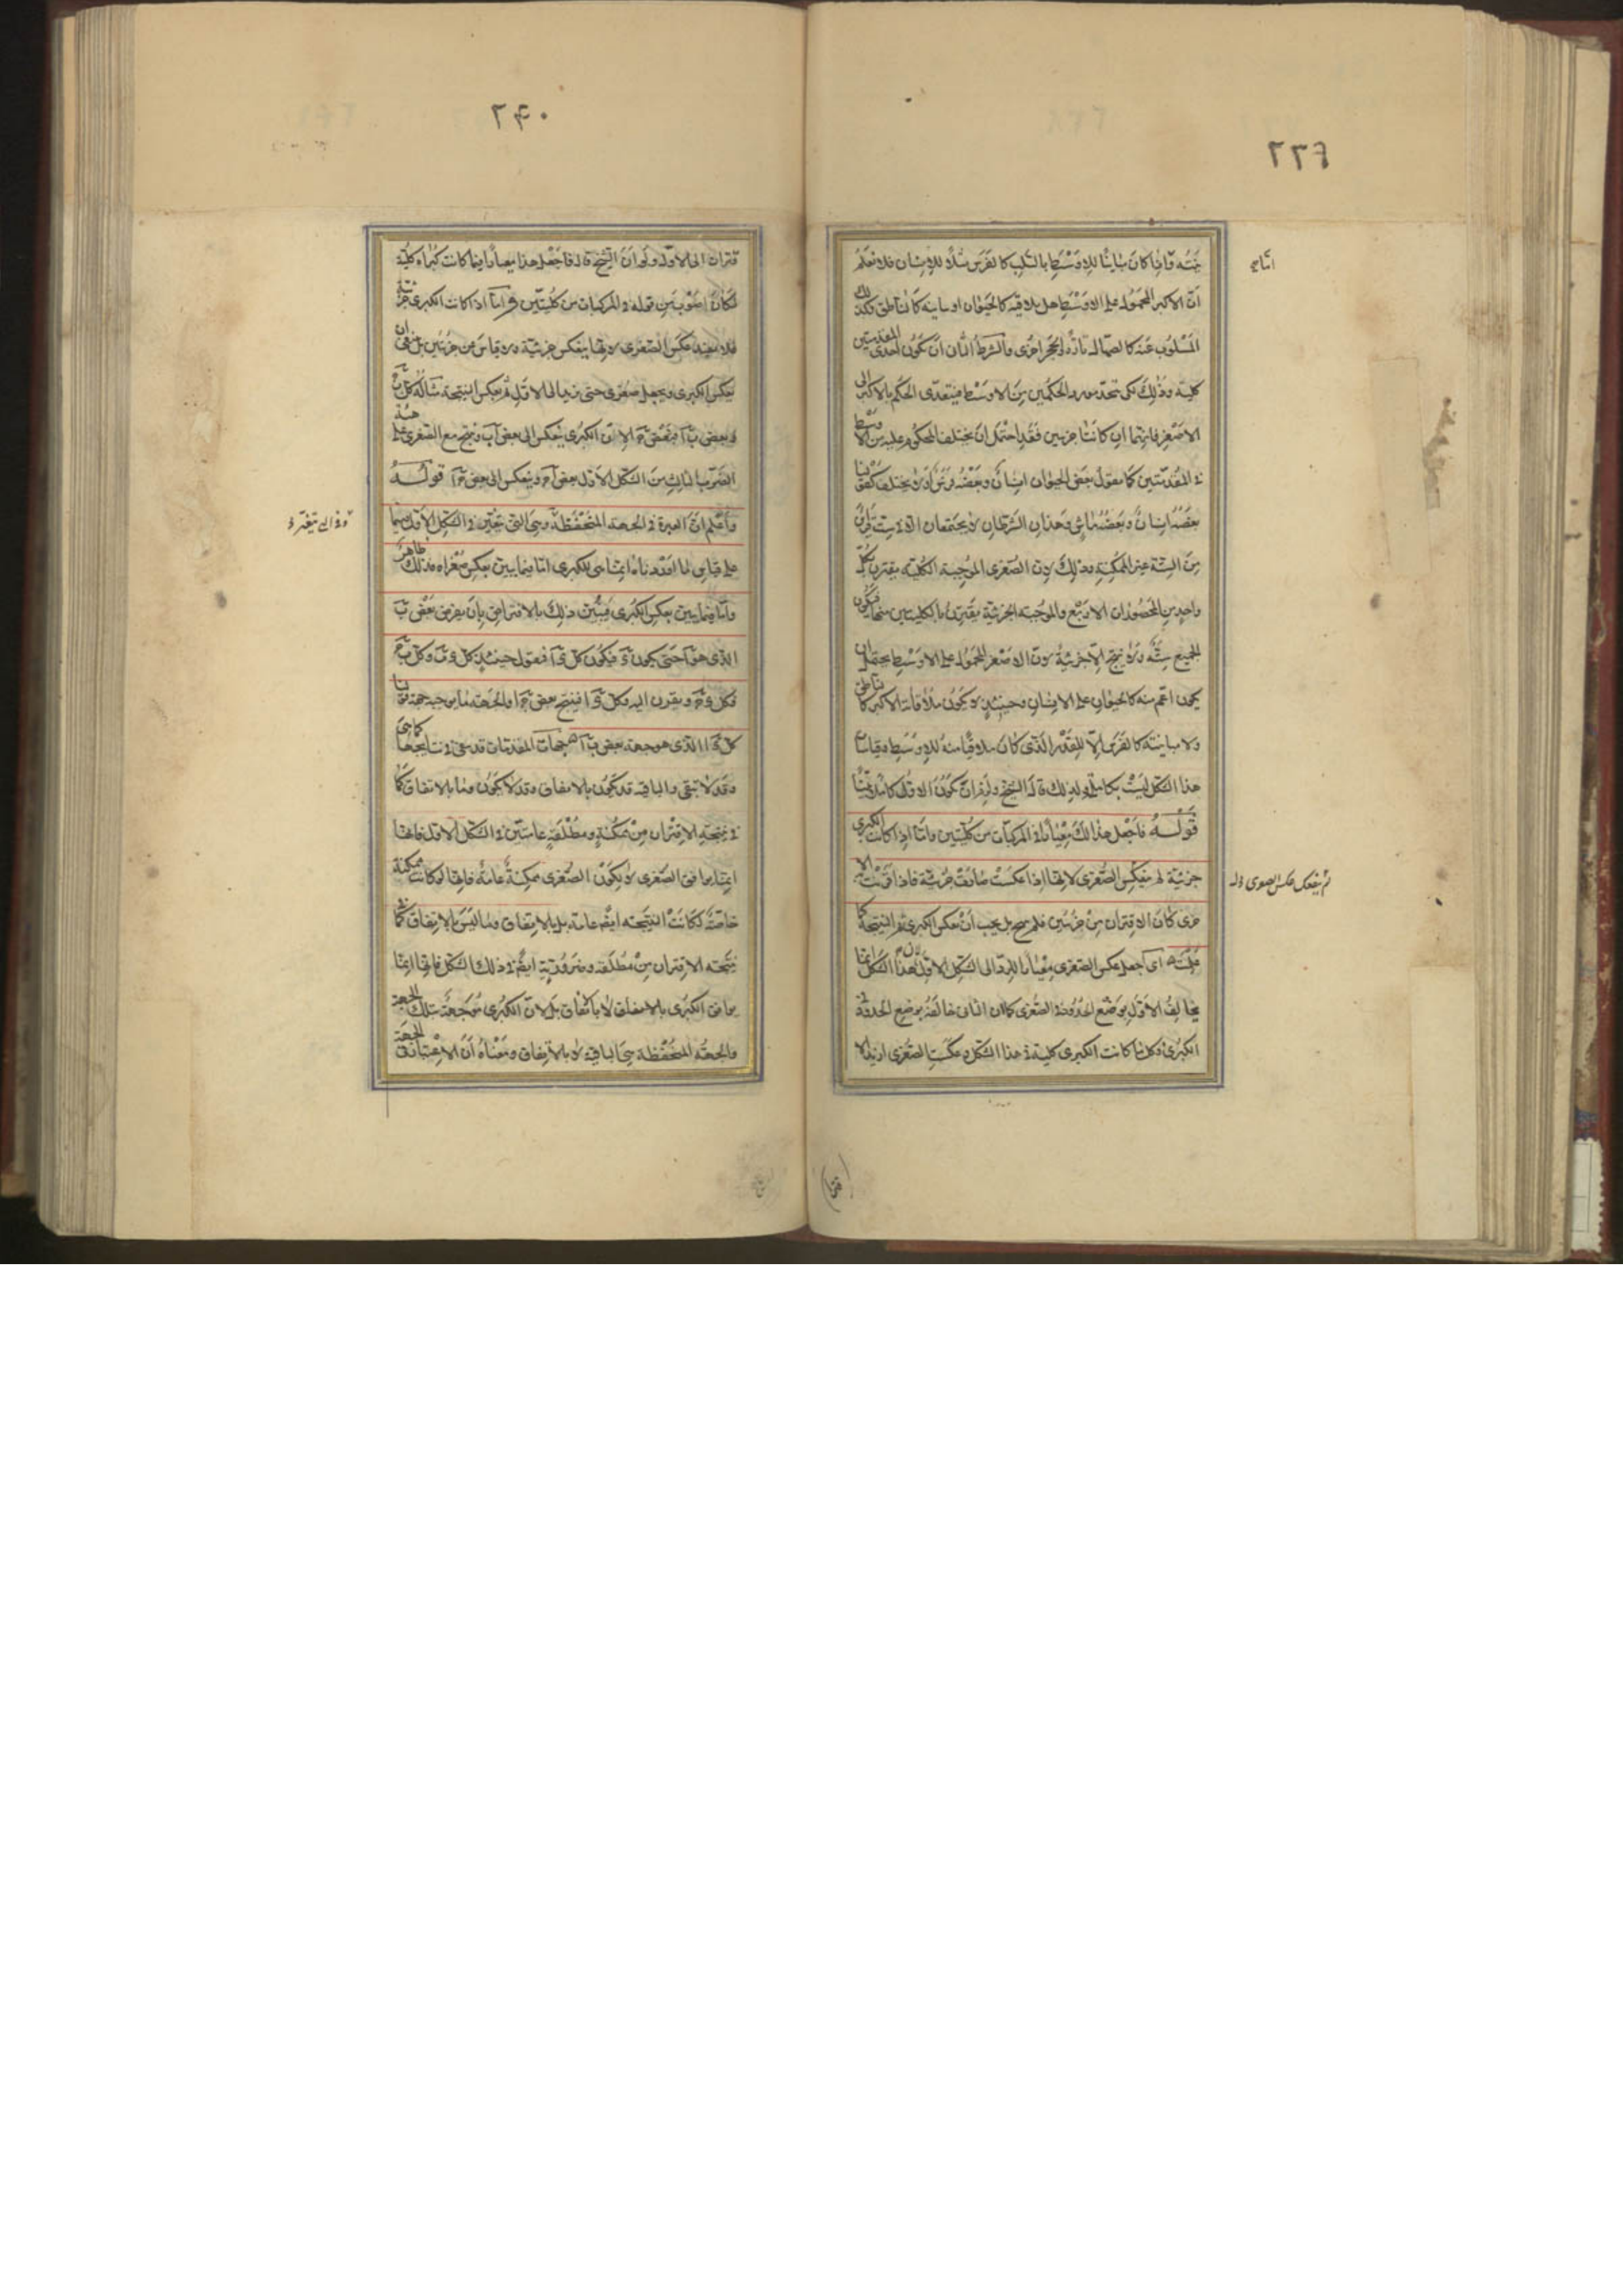 ٢٣٩
جزئه واذا كان مباينا للاوسط بالسلب كالفرس مثلا للانسان فلا نعلم
ان الاكبر المحمول على الاوسط هل يلاقيه كالحيوان او يباينه كالناطق وكذلك
المسلوب عنه كالصهال تارة والحجر اخرى والشرط الثانى ان تكون احدى المقدمتين
كلية وذلك لكى تتحد مورد الحكمين من الاوسط فيتعدى الحكم بالاكبر الى
الاصغر فانهما ان كانتا جزئيتين فقد احتمل ان يختلف المحكوم عليه من الاوسط
فى المقدمتين كما نقول بعض الحيوان انسان وبعضه فرس او لا يختلف كقولنا
بعضه انسان وبعضه ماش وهذان الشرطان لا يجتمعان الا فى ست قراين
من الستة عشر الممكنة وذلك لان الصغرى الموجبة الكلية يقترن بكل
واحد من المحصورات الاربع والموجبة الجزئية يقترن بالكليتين منها فيكون
الجميع ستة ولا ينتج الا جزئية لان الاصغر المحمول على الاوسط يحتمل ان
يكون اعم منه كالحيوان على الانسان وحينئذ لا يكون ملاقاة الاكبر كالناطق
ولا مباينته كالفرس الا للقدر الذى كان ملاقيا منه للاوسط وقياسات
هذا الشكل ليست بكاملة ولذلك قال الشيخ
قوله فاجعل هذا لك معيارا فى المركبات من كليتين واما اذا كانت الكبرى
جزئية لم ينعكس الصغرى لانها اذا عكست صارت جزئية فاذا قرنت بالا
خرى كان الاقتران من جزئيتين فلم ينتج بل يجب ان تعكس الكبرى ثم النتيجة كما
علمته اى اجعل عكس الصغرى معيارا للرد الى الشكل الاول لان هذا الشكل انما
يخالف الاول بوضع الحدود فى الصغرى كما ان الثانى خالفه بوضع الحدود فى
الكبرى وكلما كانت الكبرى كلية فى هذا الشكل وعكست الصغرى ارتد الا
انتاج
لم ينعكس الصغرى
٢٤٠
قتران الى الاول ولو ان الشيخ قال فاجعل هذا معيارا فيما كانت كبراه كلية
لكان اصوب من قوله فى المركبات من كليتين واما اذا كانت الكبرى جزئية
فلا يفيد عكس الصغرى لانها ينعكس جزئية ولا قياس عن جزئيتين بل ينبغى ان
يعكس الكبرى ويجعل صغرى حتى يرتد الى الاول ثم يعكس النتيجة مثاله كل ب ج
وبعض ب ا فبعض ج ا لان الكبرى ينعكس الى بعض ا ب وينتج مع الصغرى على هيئة
الضرب الثالث من الشكل الاول بعض ا ج وينعكس الى بعض ج ا قوله
واعلم ان العبرة فى الجهة المتحفظة وهى التى تتعين فى الشكل الاول فيما
على قياس ما اوردناه انما هى للكبرى اما فيما يبين بعكس صغراه فذلك ظاهر
واما فيما يبين بعكس الكبرى فيبين ذلك بالافتراض بان يفرض بعض ب
الذى هو ا حتى يكون د فيكون كل د ا فنقول حينئذ كل د ب وكل ب ج
فكل د ج ويقرن اليه وكل د ا فينتج بعض ج ا والجهة ما يوجبه جهة قولنا
كل د ا الذى هو جهة بعض ب ا جهات المقدمات قد تبقى فى نتايجها كما هى
وقد لا تبقى والباقية قد تكون بالاتفاق وقد لا يكون وما بالاتفاق كما
فى نتيجة الاقتران من ممكنة ومطلقة عامتين فى الشكل الاول فانها
انما يوافق الصغرى لا لكون الصغرى ممكنة عامة فانها لو كانت ممكنة
خاصة لكانت النتيجة ايضا عامة بل بالاتفاق وما ليس بالاتفاق كما
نتيجة الاقتران من مطلقة وضرورية ايضا فى ذلك الشكل فانها انما
يوافق الكبرى بالاتفاق لا باتفاق بل لان الكبرى موجهة بتلك الجهة
والجهة المتحفظة هى الباقية لا بالاتفاق ومعناه ان الاعتبار فى الجهة